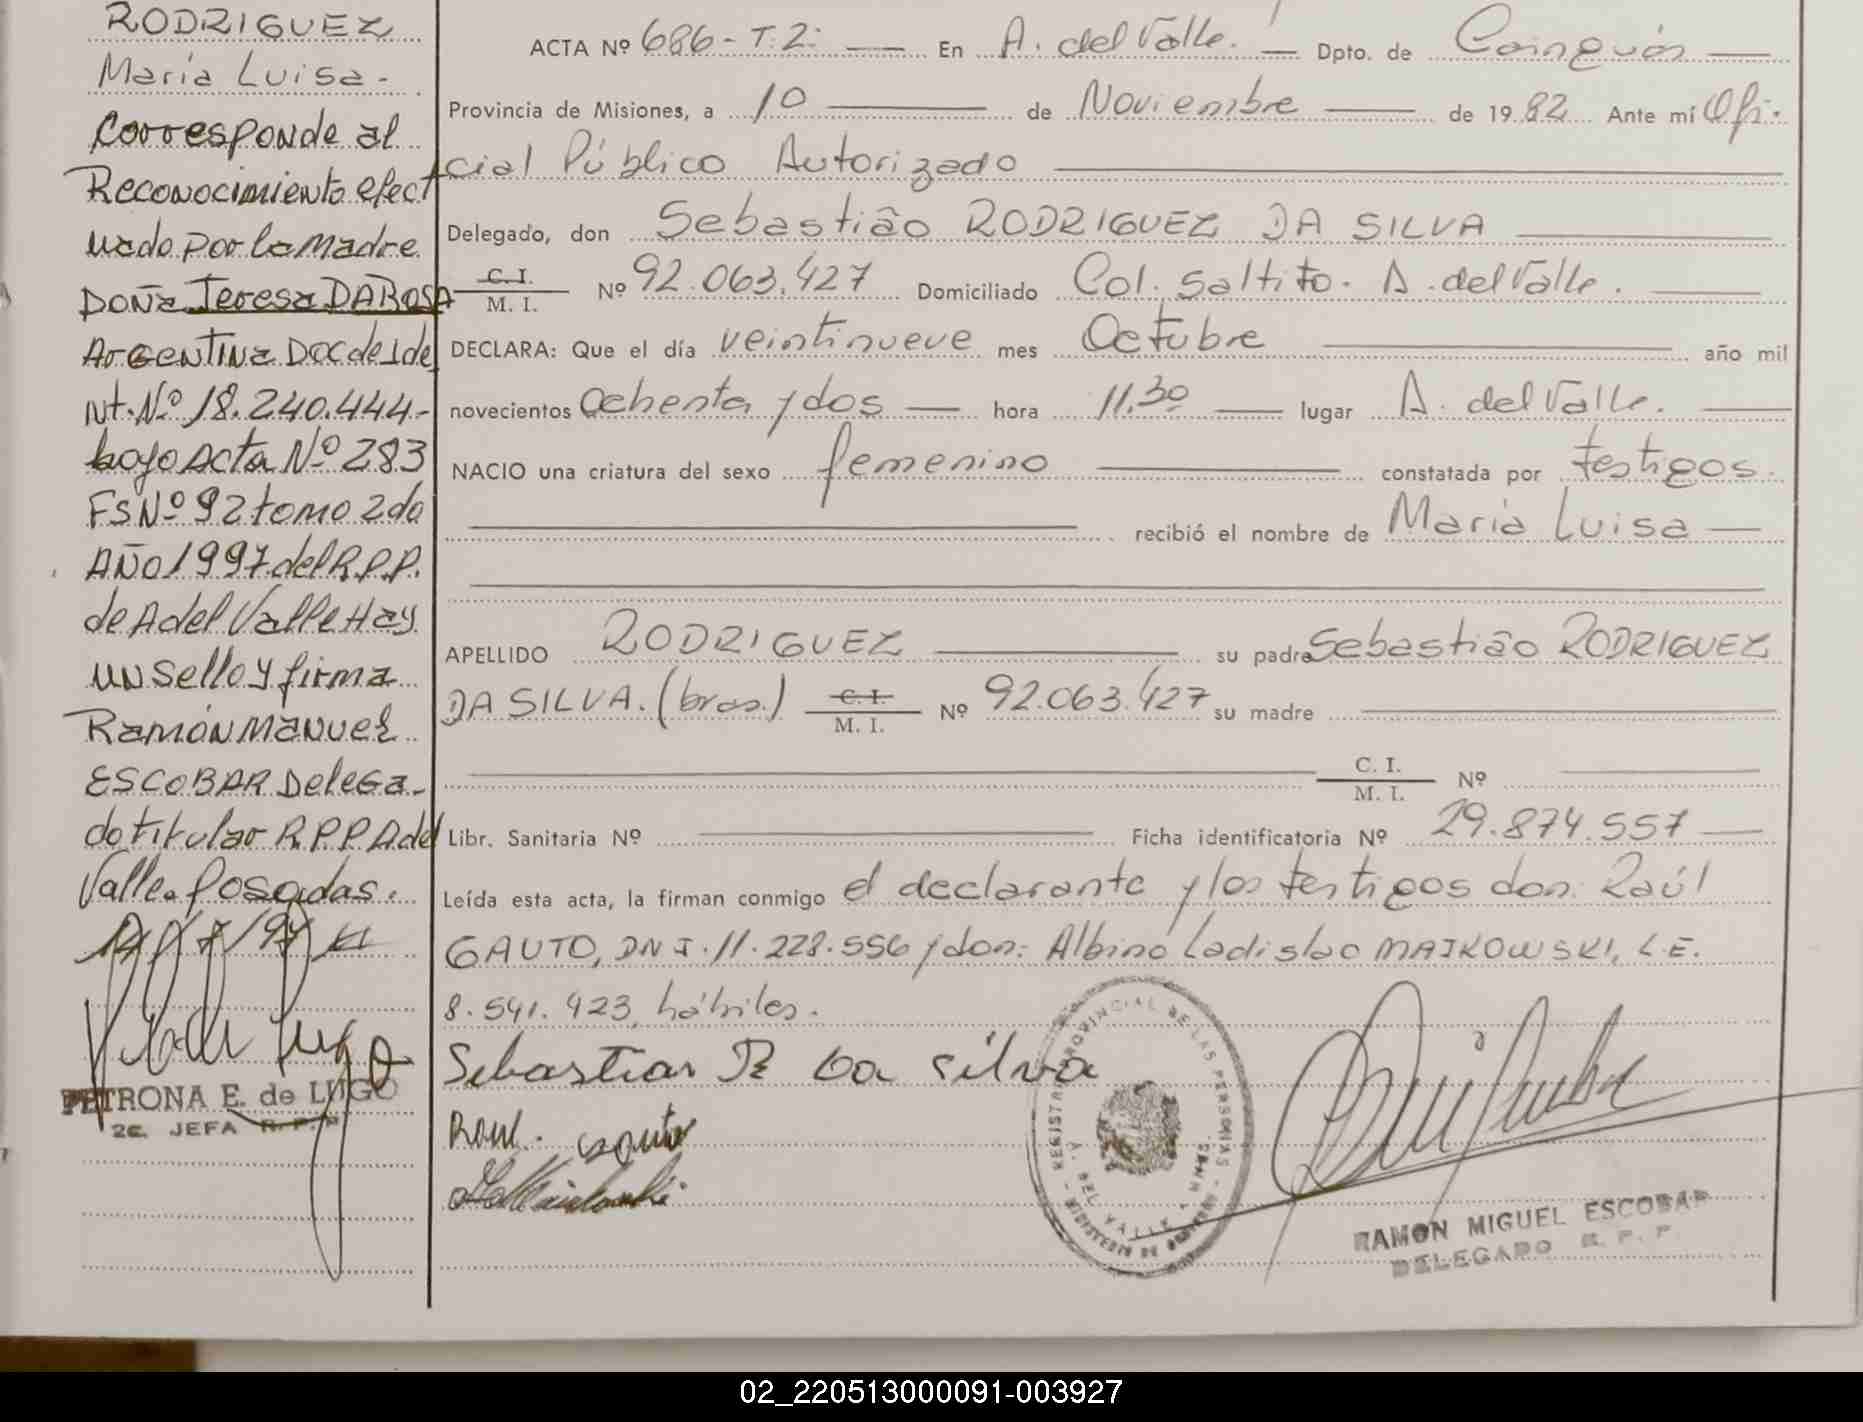 RODRIGUEZ
María Luisa -
Corresponde al
Reconocimiento efect
uado por la madre
DOÑA Teresa DA ROSA
ARGENTINA DOC de Ide
nt. Nº 18.240.444-
bajo Acta Nº 283
FS Nº 92 tomo 2do
AÑO 1997 del R.P.P.
de A del Valle Hay
un sello y firma
RAMÓN MANUEL
ESCOBAR Delega-
do titular R.P.P A del
Valle. Posadas.
14/7/97
PETRONA E. de LUGO
2a. JEFA R.P.P.
ACTA Nº 686 - T.2: — En A. del Valle. — Dpto. de Cainguás —
Provincia de Misiones, a 10 — de Noviembre — de 1982 Ante mí Ofi-
cial Público Autorizado
Delegado, don Sebastião RODRIGUEZ DA SILVA
C. I. / M. I. Nº 92.063.427 Domiciliado Col. Saltito. A. del Valle. —
DECLARA: Que el día veintinueve mes Octubre — año mil
novecientos Ochenta y dos — hora 11.30 — lugar A. del Valle. —
NACIO una criatura del sexo femenino — constatada por testigos.
recibió el nombre de María Luisa —
APELLIDO RODRIGUEZ — su padre Sebastião RODRIGUEZ
DA SILVA. (bras.) C. I. / M. I. Nº 92.063.427 su madre —
C. I. / M. I. Nº —
Libr. Sanitaria Nº — Ficha identificatoria Nº 29.874.557 —
Leída esta acta, la firman conmigo el declarante y los testigos don: Raúl
GAUTO, DNI. 11.228.556 y don: Albino Ladislao MAJKOWSKI, L.E.
8.541.423, hábiles.
Sebastian R da silva
Raul. Gauto
REGISTRO PROVINCIAL DE LAS PERSONAS
A. DEL VALLE - MNES.
MINISTERIO DE GOBIERNO
RAMON MIGUEL ESCOBAR
DELEGADO R. P. P.
02_220513000091-003927